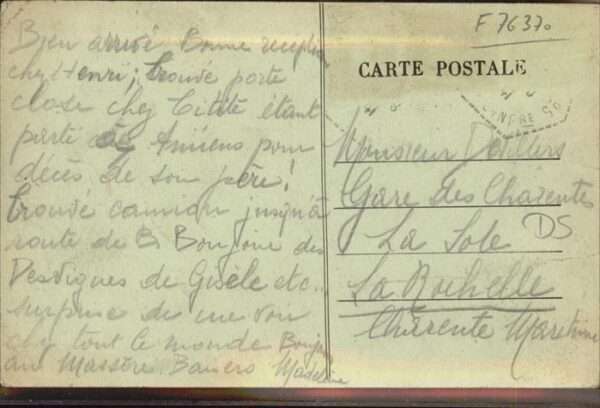 F 76370
CARTE POSTALE
Bien arrivé Bonne réception
chez Henri; trouvé porte
close chez Titité étant
parti Amiens pour
décès de son père!
trouvé camion jusqu'à
route de B. Bonjour des
Desvignes de Gisèle etc..
surprise de me voir
chez tout le monde Bonjour
aux Baisers Madeleine
Monsieur
Gare des Charentes
La
La Rochelle
Charente Maritime
DS